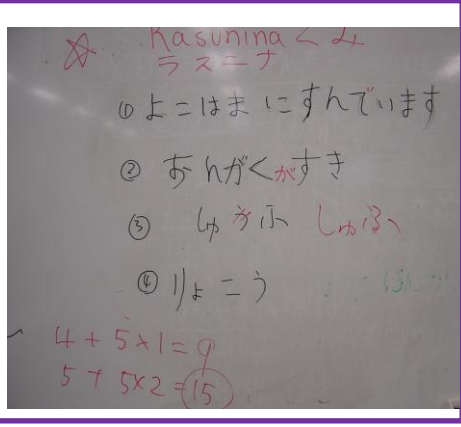 ☆ Rasunina くみ
ラスニナ
① よこはま にすんでいます
② おんがくがすき
③ しゅふ しゅふ
④ りょこう
4 + 5×1 = 9
5 + 5×2 = 15